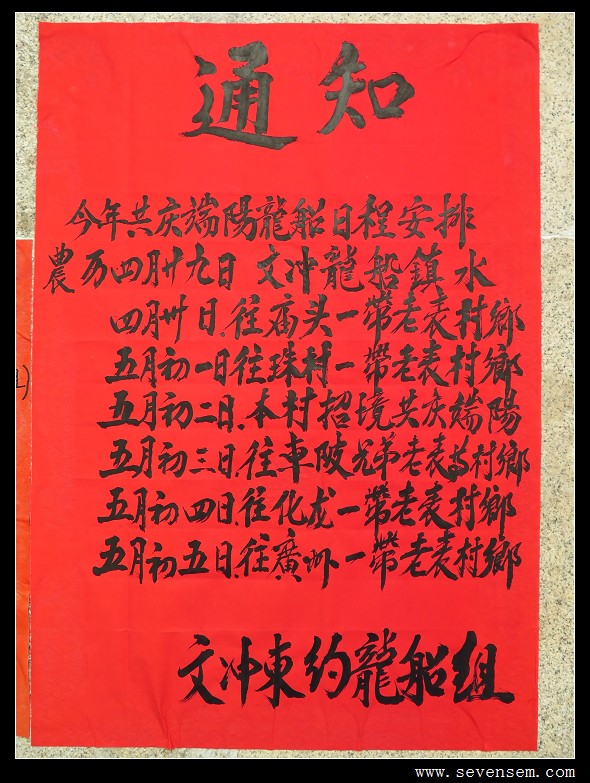 通知
今年共庆端陽龍船日程安排
農历四月廿九日 文冲龍船鎮水
四月卅日.往庙头一带老表村鄉
五月初一日往珠村一帶老表村鄉
五月初二日.本村招境共庆端陽
五月初三日.往車陂兄弟老表等村鄉
五月初四日.往化龙一帶老表村鄉
五月初五日.往廣州一帶老表村鄉
文冲東约龍船组
www.sevensem.com